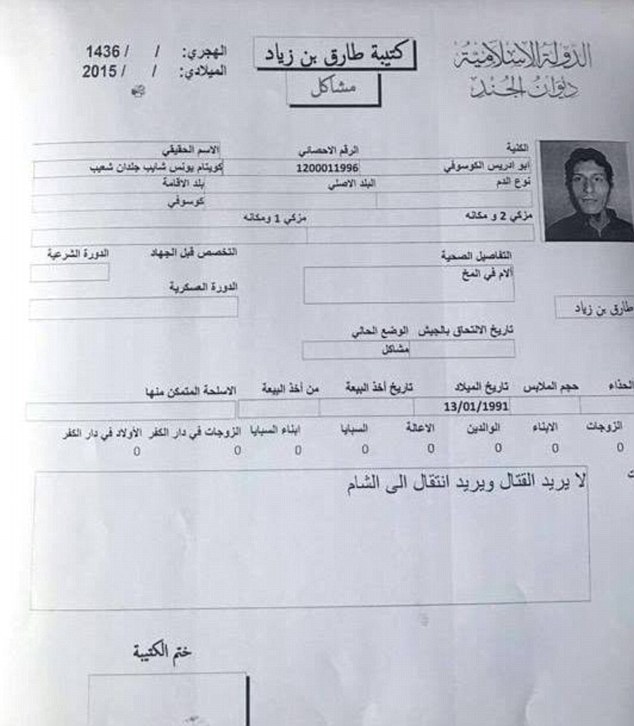 الدولة الإسلامية
ديوان الجند
كتيبة طارق بن زياد
مشاكل
الهجري: / / 1436
الميلادي: / / 2015
الكنية الرقم الاحصائي الاسم الحقيقي
ابو ادريس الكوسوفي 1200011996 كويتام يونس شايب جلدان شعيب
نوع الدم البلد الاصلي بلد الاقامة
كوسوفي
مزكي 2 و مكانه مزكي 1 ومكانه
التفاصيل الصحية التخصص قبل الجهاد الدورة الشرعية
آلام في المخ
الدورة العسكرية
طارق بن زياد
تاريخ الالتحاق بالجيش الوضع الحالي
مشاكل
الحذاء حجم الملابس تاريخ الميلاد تاريخ أخذ البيعة من أخذ البيعة الاسلحة المتمكن منها
13/01/1991
الزوجات الابناء الوالدين الاعالة السبايا ابناء السبايا الزوجات في دار الكفر الأولاد في دار الكفر
0 0 0 0 0 0 0 0
لا يريد القتال ويريد انتقال الى الشام
ختم الكتيبة